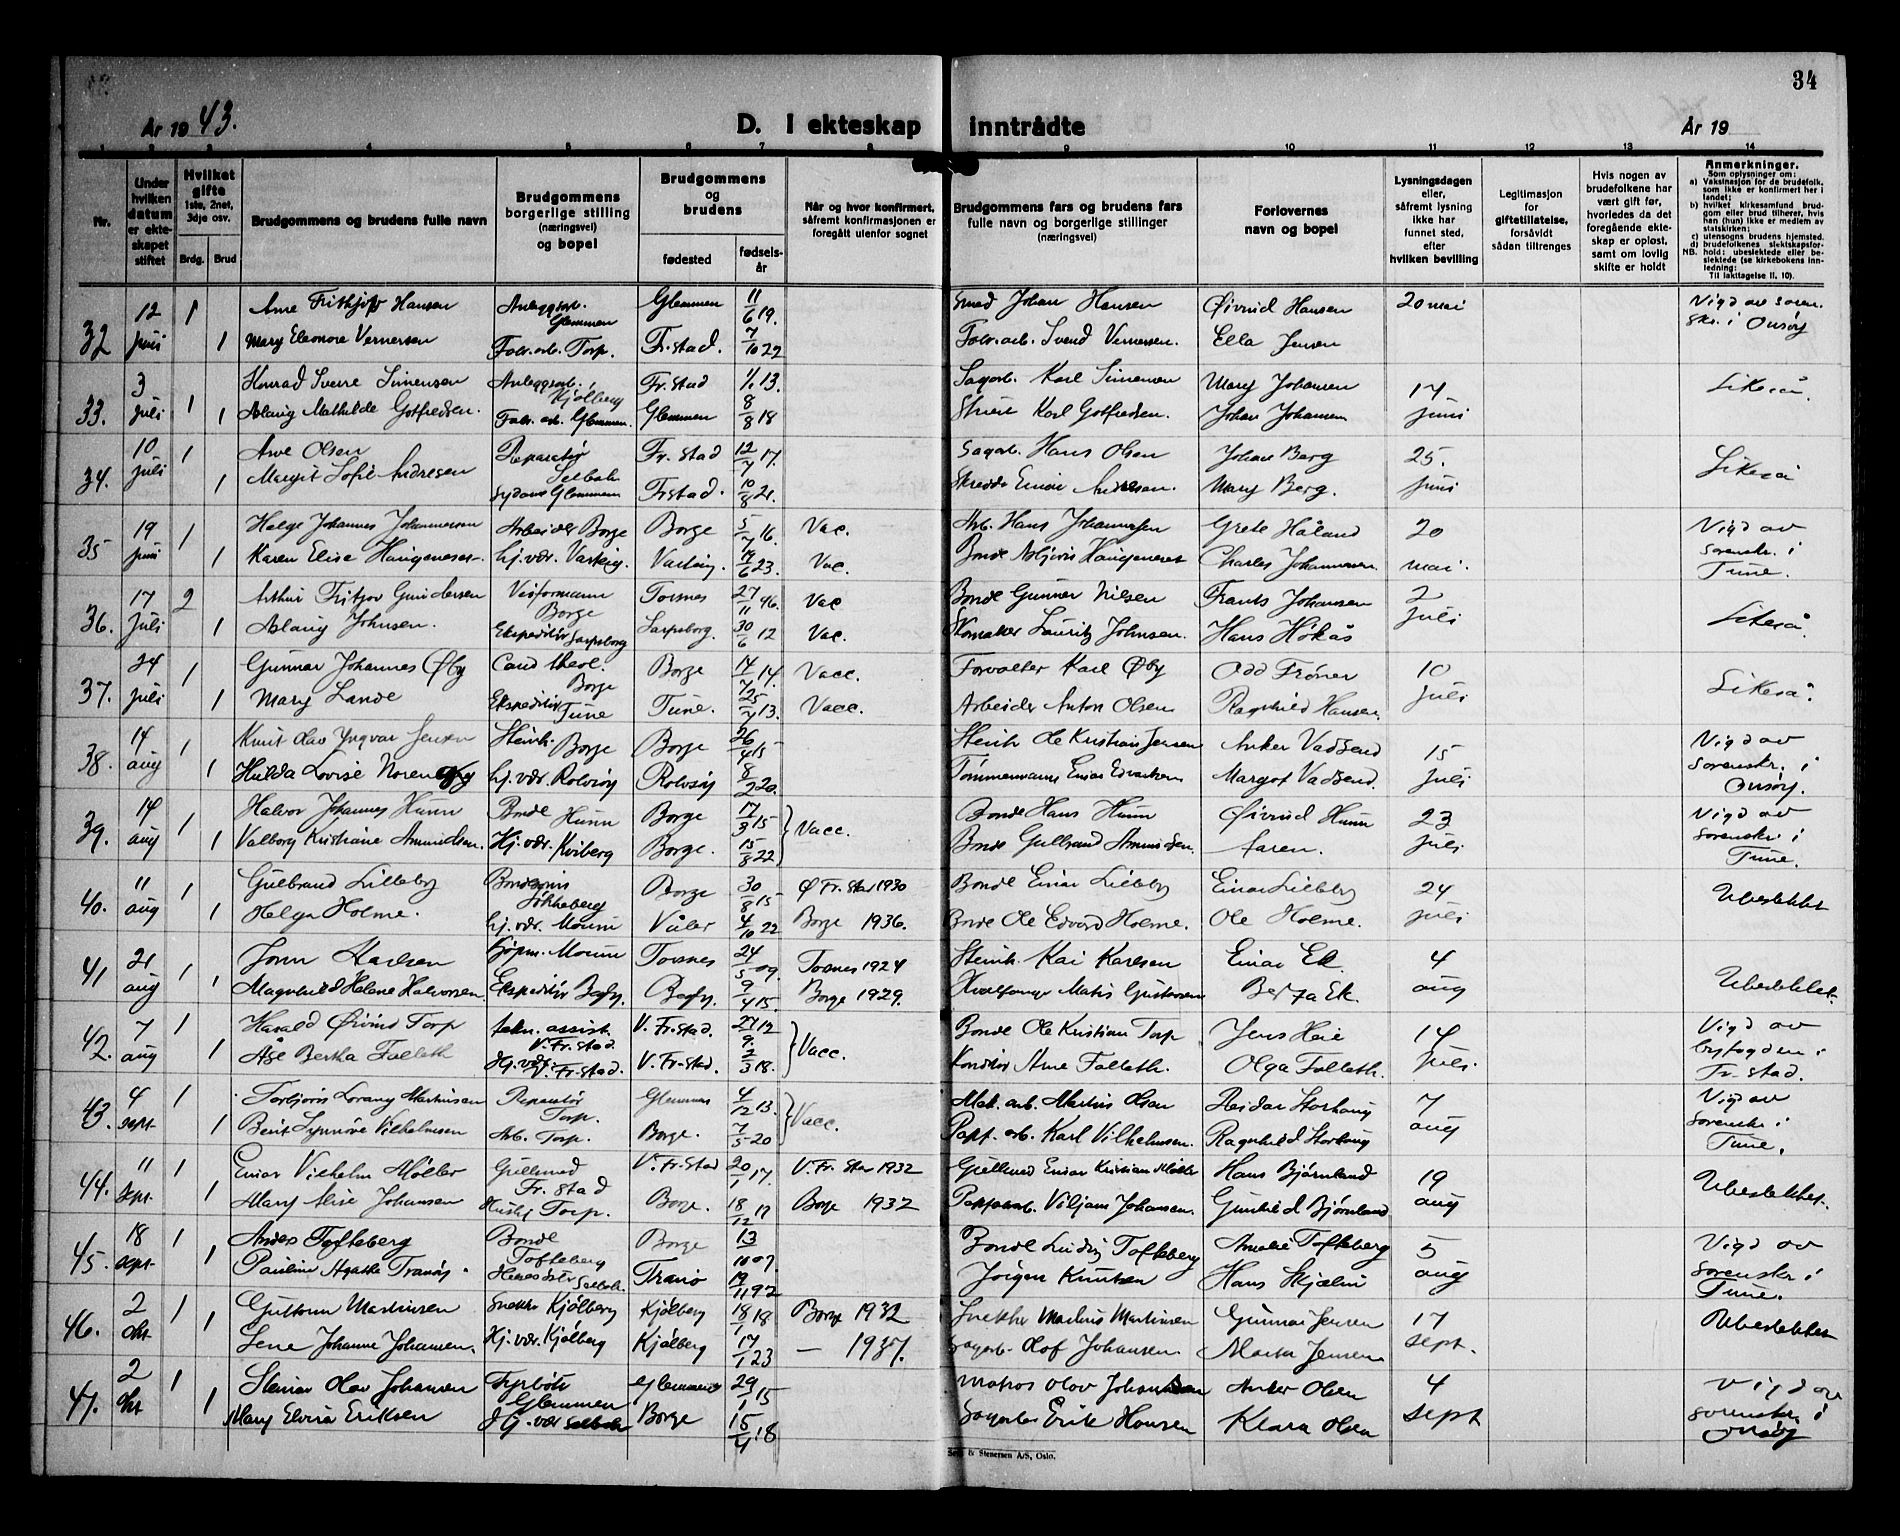 34
År 19 43.
D. I ekteskap inntrådte
År 19
1 2 3 4 5 6 7 8 9 10 11 12 13 14
Nr.
Under hvilken datum er ekteskapet stiftet
Hvilket gifte 1ste, 2net, 3dje osv.
Brdg. Brud
Brudgommens og brudens fulle navn
Brudgommens borgerlige stilling (næringsvei) og bopel
Brudgommens og brudens
fødested
fødselsår
Når og hvor konfirmert, såfremt konfirmasjonen er foregått utenfor sognet
Brudgommens fars og brudens fars fulle navn og borgerlige stillinger (næringsvei)
Forlovernes navn og bopel
Lysningsdagen eller, såfremt lysning ikke har funnet sted, efter hvilken bevilling
Legitimasjon for giftetillatelse, forsåvidt sådan tiltrenges
Hvis nogen av brudefolkene har vært gift før, hvorledes da det foregående ekteskap er opløst, samt om lovlig skifte er holdt
Anmerkninger.
Som oplysninger om:
a) Vaksinasjon for de brudefolk, som ikke er konfirmert her i landet;
b) hvilket kirkesamfund brudgom eller brud tilhører, hvis han (hun) ikke er medlem av statskirken;
c) utensogns brudens hjemsted.
d) brudefolkenes slektskapsforhold: ubeslektede eller beslektede (se kirkebokens innledning:
NB. Til iakttagelse II, 10).
32 12 juni 1 Arne Frithjof Hansen Anleggsarb. Glemmen Glemmen 11/6 19. Smed Johan Hansen Øivind Hansen 20 mai Vigd av soren.skr. i Onsøy
1 Mary Eleonore Vernersen Fabr.arb. Torp. Fr.stad. 7/10 22 Fabr.arb. Svend Vernersen. Ella Jensen
33. 3 juli 1 Konrad Sverre Simensen Anleggsarb. Kjølberg Fr.stad 1/1 13. Sagarb. Karl Simensen Mary Johansen 17 juni Likeså.
1 Aslaug Mathilde Gotfredsen. Fabr. arb. Glemmen. Glemmen 8/8 18 Stuer Karl Gotfredsen. Johan Johansen
34. 10 juli 1 Arve Olsen Reparatør Selbak Fr.stad 12/7 17. Sagarb. Hans Olsen Johan Berg 25. juni Likeså
1 Margit Sofie Andresen Sydame Glemmen Fr.stad. 10/8 21. Skredder Einar Andresen. Mary Berg.
35 19 juni 1 Helge Johannes Johannessen Arbeider Borge Borge 5/7 16. Vac. Arb. Hans Johannessen Grete Håland 20 mai. Vigd av sorenskr. i Tune.
1 Karen Elise Haugeneset Hj.vær. Varteig. Varteig. 19/6 23. Vac. Bonde Asbjørn Haugeneset Charles Johannessen.
36. 17 juli 2 Arthur Fritjov Gundersen Viseformann Borge Torsnes 27/11 Vac Bonde Gunnar Nilsen Frants Johansen 2 juli Likeså.
1 Aslaug Johnsen. Ekspeditør Sarpsborg Sarpsborg. 30/6 12 Vac. Skomaker Lauritz Johnsen. Hans Hökås
37. 24 juli 1 Gunnar Johannes Øby Cand. theol. Borge Borge 14/7 14. Vacc. Forvalter Karl Øby Odd Frøner 10 juli Likeså.
1 Mary Lande Ekspeditør Tune Tune. 25/7 13. Vacc. Arbeider Anton Olsen Ragnhild Hansen.
38. 14 aug 1 Knut Olav Yngvar Jensen Steinh. Borge Borge 26/4 15 Steinh Ole Kristian Jensen Anker Vadsend 15 juli Vigd av sorenskr. i Onsøy.
1 Hulda Lovise Norenberg Hj.vær. Rolvsøy Rolvsøy 8/2 20. Tømmermann Einar Edvardsen Margot Vadsend.
39. 14 aug 1 Halvor Johannes Hunn Bonde Hunn Borge 17/3 15 } Vacc. Bonde Hans Hunn Øivind Hunn 23 juli Vigd av sorenskr. i Tune.
1 Valborg Kristiane Amundsen. Hj.vær. Kviberg Borge. 15/8 22 Bonde Gulbrand Amundsen. faren.
40. 11 aug 1 Gulbrand Lilleby Bondesønn Borge 30/8 15 Ø Fr.stad 1930 Bonde Einar Lilleby Einar Lilleby 24 juli Ubeslektet
1 Helga Holme. Hj.vær. Moum Våler 4/10 22 Borge 1936. Bonde Ole Edvard Holme. Ole Holme.
41 21 aug 1 John Karlsen Kjøpm. Moum Torsnes 24/5 09. Torsnes 1924 Steinh. Kai Karlsen Einar Ek. 4 aug Ubeslektet.
1 Magnhild Helene Halvorsen Ekspeditør Begby. Begby. 9/4 15. Borge 1929. Hvalfanger Matis Gustavsen Berta Ek.
42. 7 aug 1 Harald Øivind Torp tekn. assist. V. Fr.stad. V. Fr.stad. 27/9 12 } Vacc. Bonde Ole Kristian Torp Jens Heie 14 juli. Vigd av byfogden i Fr.stad.
1 Åse Bertha Falleth Hj.vær. V. Fr.stad. V. Fr.stad. 2/3 18. Konditor Arne Falleth. Olga Falleth.
43. 4 sept 1 Torbjørn Lorang Martinsen Reparatør Torp. Glemmen 4/12 13. } Vacc. Mek. arb. Martin Olsen Reidar Storhaug 7 aug Vigd av sorenskr. i Tune.
1 Berit Synnöve Vilhelmsen Arb. Torp. Borge. 7/5 20 Papf. arb. Karl Vilhelmsen. Ragnhild Storhaug
44. 11 sept. 1 Einar Vilhelm Møller Gullsmed Fr.stad V. Fr.stad 20/1 17. V. Fr.stad 1932 Gullsmed Einar Kristian Møller Hans Bjørnland 19 aug Ubeslektet.
1 Mary Alise Johansen Hushj. Torp. Borge. 18/12 17 Borge 1932 Pappsarb. Viljam Johansen. Gunhild Bjørnland
45. 18 sept. 1 Anders Tofteberg Bonde Tofteberg Borge 13/11 07. Bonde Ludvig Tofteberg Amalie Tofteberg 5 aug Vigd av sorenskr. i Tune.
1 Pauline Agathe Tranøy. Selbak. Tranø 19/11 92 Jörgen Knutsen Hans Skjælin
46. 2 okt 1 Guttorm Martinsen Snekker Kjølberg Kjølberg 18/1 18 Borge 1932 Snekker Markus Martinsen Gunnar Jensen 17 sept. Ubeslektet
1 Lene Johanne Johansen. Hj.vær. Kjølberg Kjølberg 17/1 23 — 1937. Sagarb. Olof Johansen Marta Jensen
47. 2 okt 1 Steinar Olav Johansen Fyrbøter Glemmen Glemmen 29/1 15 Matros Olav Johansen Anker Olsen 4 sept Vigd av sorenskr. i Onsøy
1 Mary Elvira Eriksen Hj. vær Selbak Borge 15/4 18 Sagarb. Erik Hansen Klara Olsen
Sem & Stenersen A/S, Oslo.